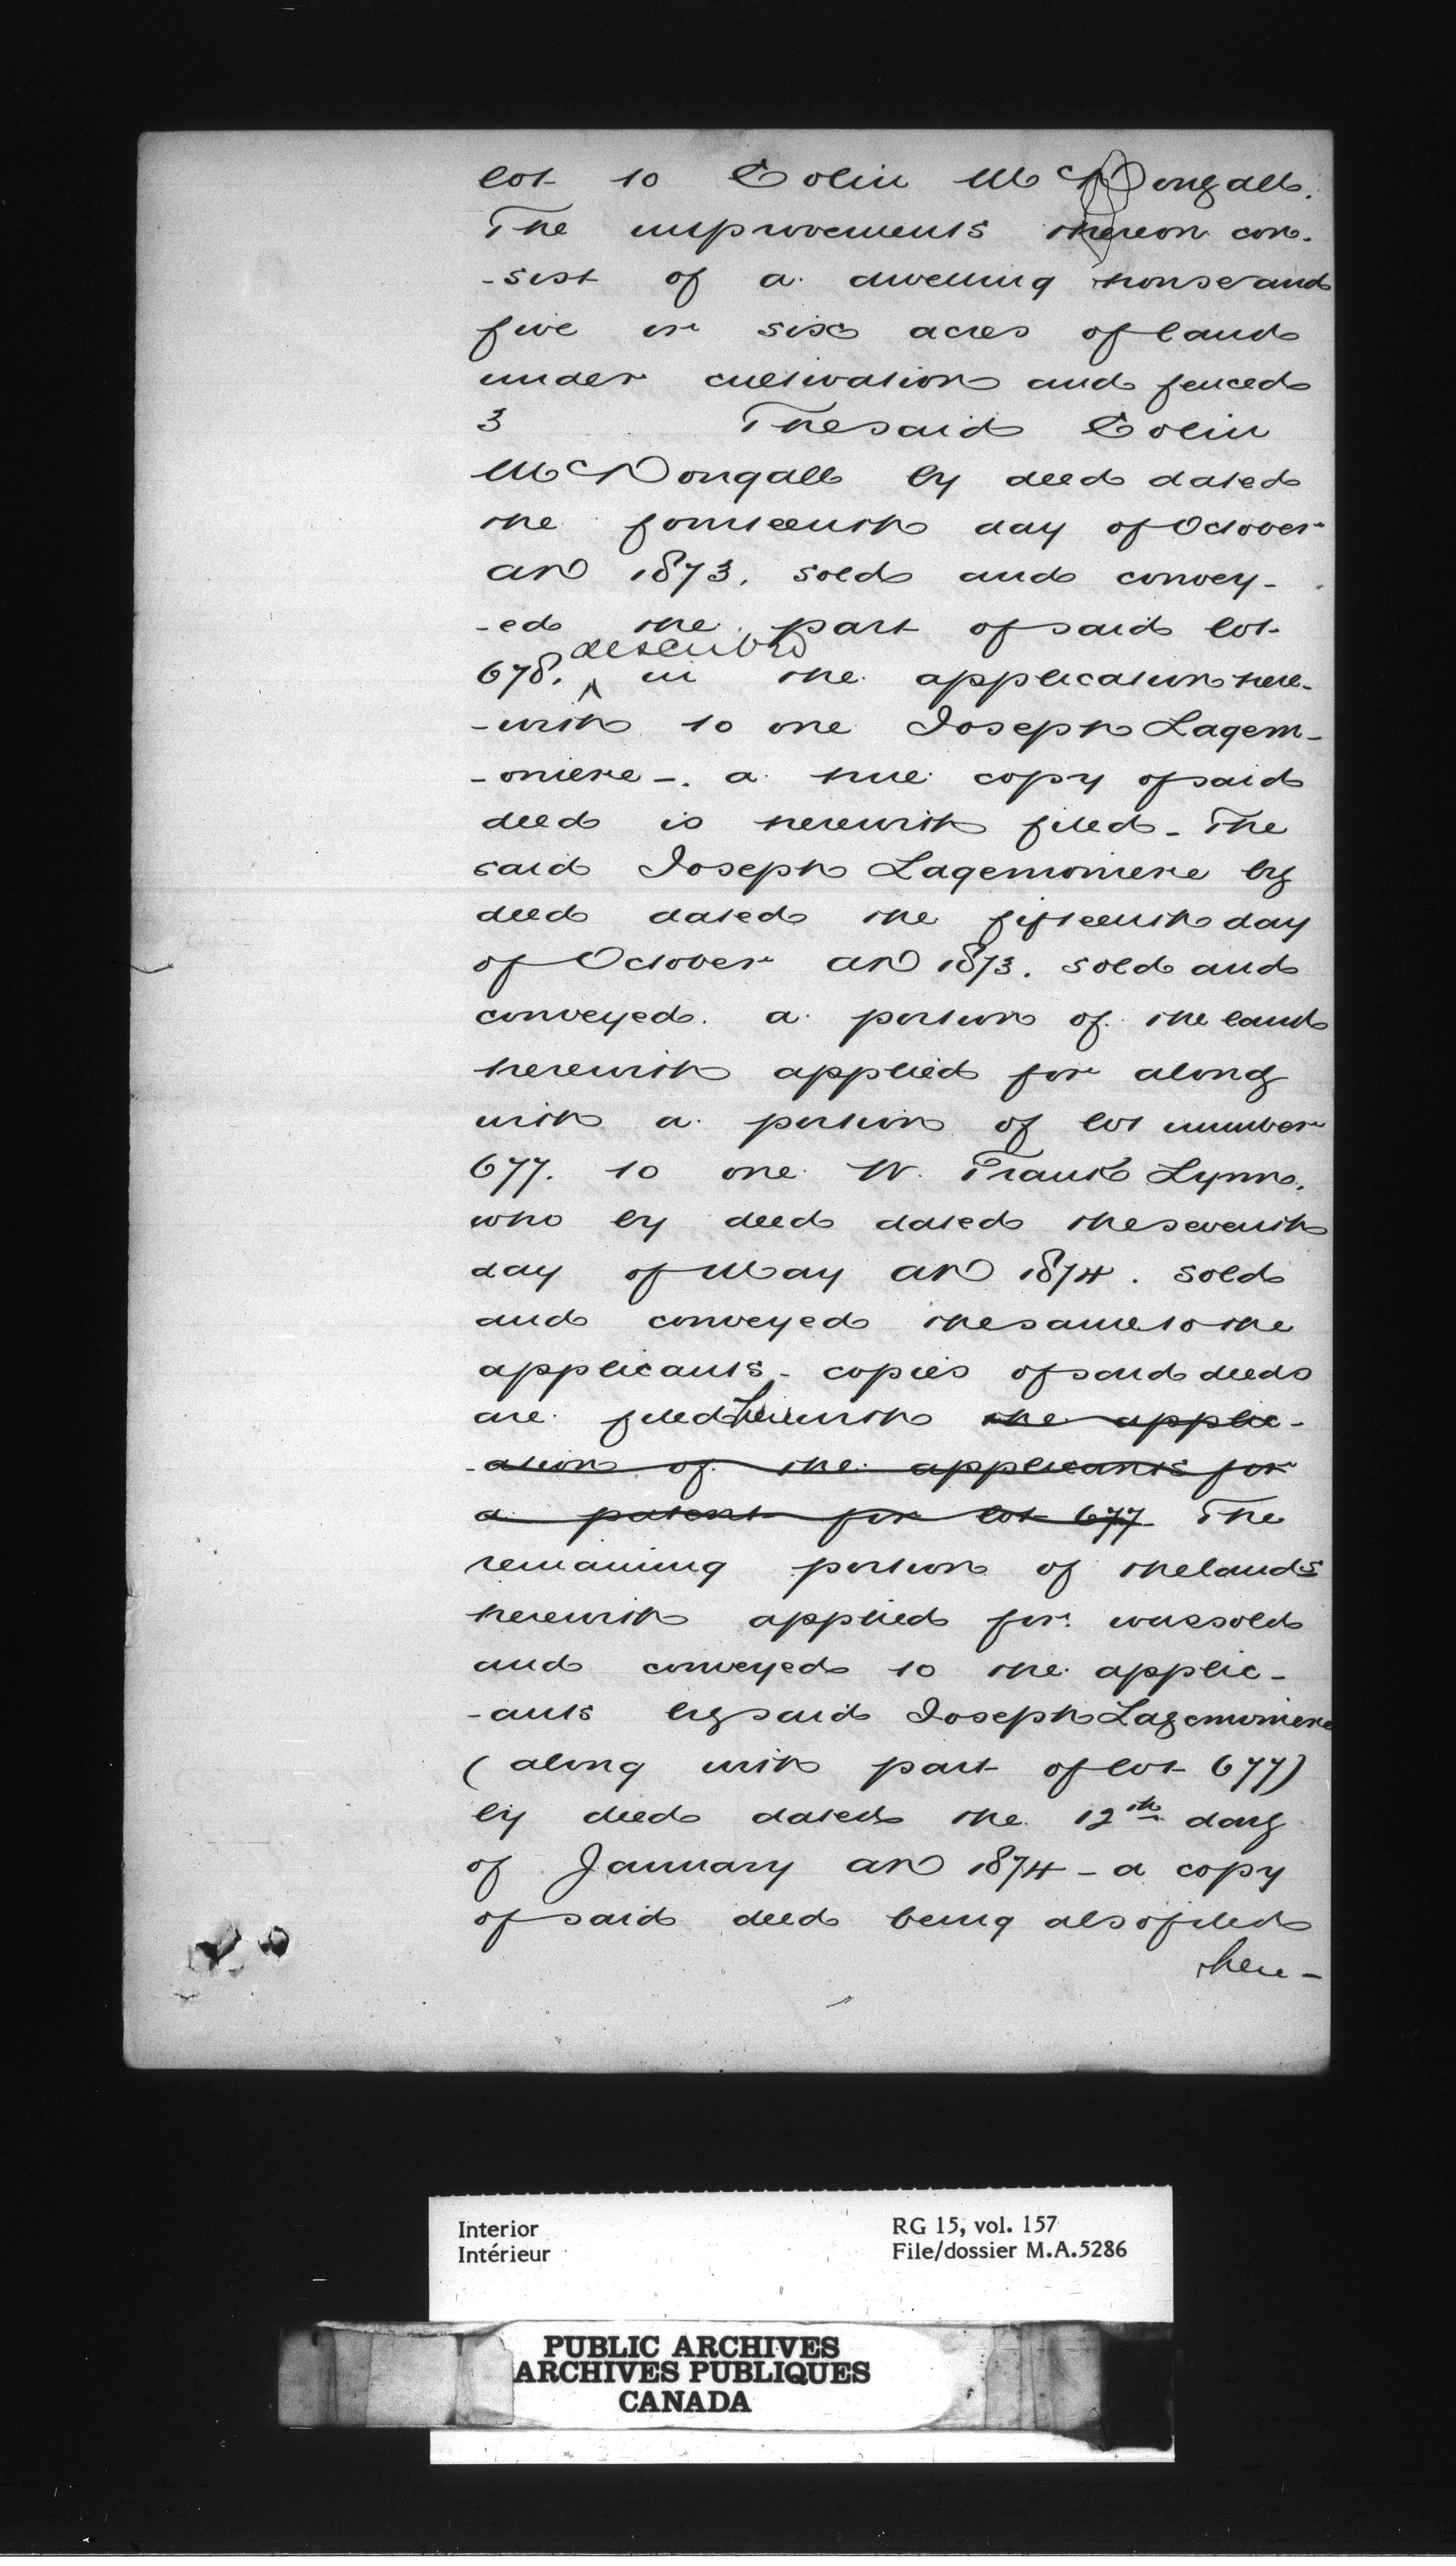 lot to Colin McDougall.
The improvements thereon con-
-sist of a dwelling house and
five or six acres of land
under cultivation and fenced
3 The said Colin
McDougall by deed dated
the fourteenth day of October
AD 1873. sold and convey-
-ed the part of said lot
described
678. ^ in the application here-
-with to one Joseph Lagem-
-oniere -. a true copy of said
deed is herewith filed - The
said Joseph Lagemoniere by
deed dated the fifteenth day
of October AD 1873. sold and
conveyed a portion of the land
herewith applied for along
with a portion of lot number
677. to one W. Frank Lynn.
who by deed dated the seventh
day of May AD 1874. sold
and conveyed the same to the
applicants - copies of said deeds
are filed herewith the applic-
-ation of the applicants for
a patent for lot 677 The
remaining portion of the lands
herewith applied for was sold
and conveyed to the applic-
-ants by said Joseph Lagemoniere
(along with part of lot 677)
by deed dated the 12th day
of January AD 1874 - a copy
of said deed being also filed
here-
Interior
Intérieur
RG 15, vol. 157
File/dossier M.A.5286
PUBLIC ARCHIVES
ARCHIVES PUBLIQUES
CANADA